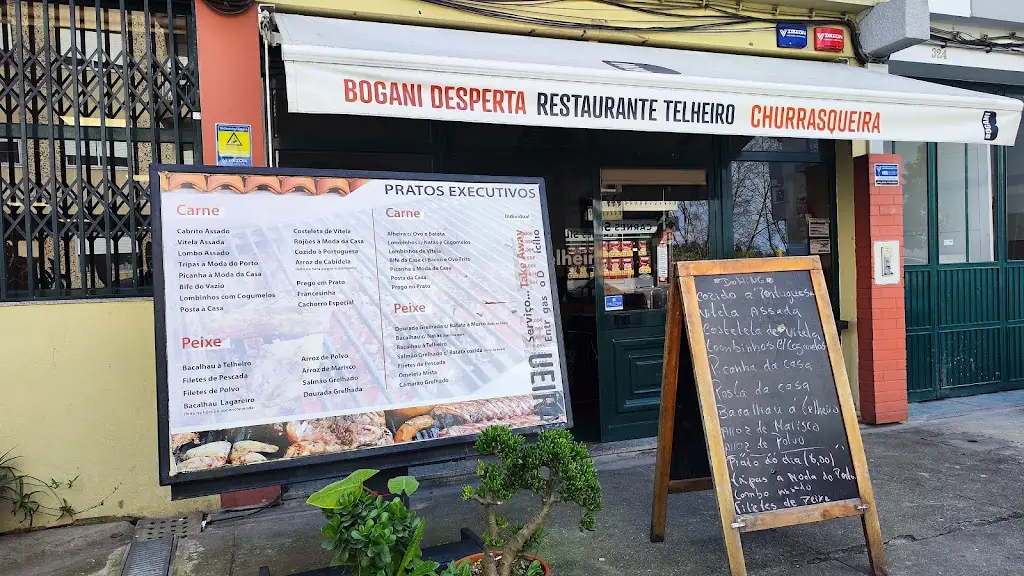 BOGANI DESPERTA RESTAURANTE TELHEIRO CHURRASQUEIRA
324
PRATOS EXECUTIVOS
Carne
Cabrito Assado
Vitela Assada
Lombo Assado
Tripas à Moda do Porto
Picanha à Moda da Casa
Bife do Vazio
Lombinhos com Cogumelos
Posta à Casa
Costeleta de Vitela
Rojões à Moda da Casa
Cozido à Portuguesa
Arroz de Cabidela
Prego em Prato
Francesinha
Cachorro Especial
Peixe
Bacalhau à Telheiro
Filetes de Pescada
Filetes de Polvo
Bacalhau Lagareiro
Arroz de Polvo
Arroz de Marisco
Salmão Grelhado
Dourada Grelhada
Carne
Individual
Alheira c/ Ovo e Batata
Lombinhos c/ Natas e Cogumelos
Lombinhos de Vitela
Bife da Casa c/ Bacon e Ovo Frito
Picanha à Moda da Casa
Posta da Casa
Prego no Prato
Peixe
Dourada Grelhada c/ Batata a Murro
Bacalhau c/ Natas
Bacalhau à Telheiro
Salmão Grelhado c/ Batata cozida
Filetes de Pescada
Omeleta Mista
Camarão Grelhado
Serviço... Take Away
Domingo
Cozido a Portuguesa
Vitela Assada
Costeleta de Vitela
Loombinhos c/ Cogumelos
Picanha da casa
Posta da casa
Bacalhau a Telheiro
Arroz de Marisco
Arroz de Polvo
Prato do dia (8,00)
Tripas a Moda do Porto
Lombo assado
Filetes de Peixe